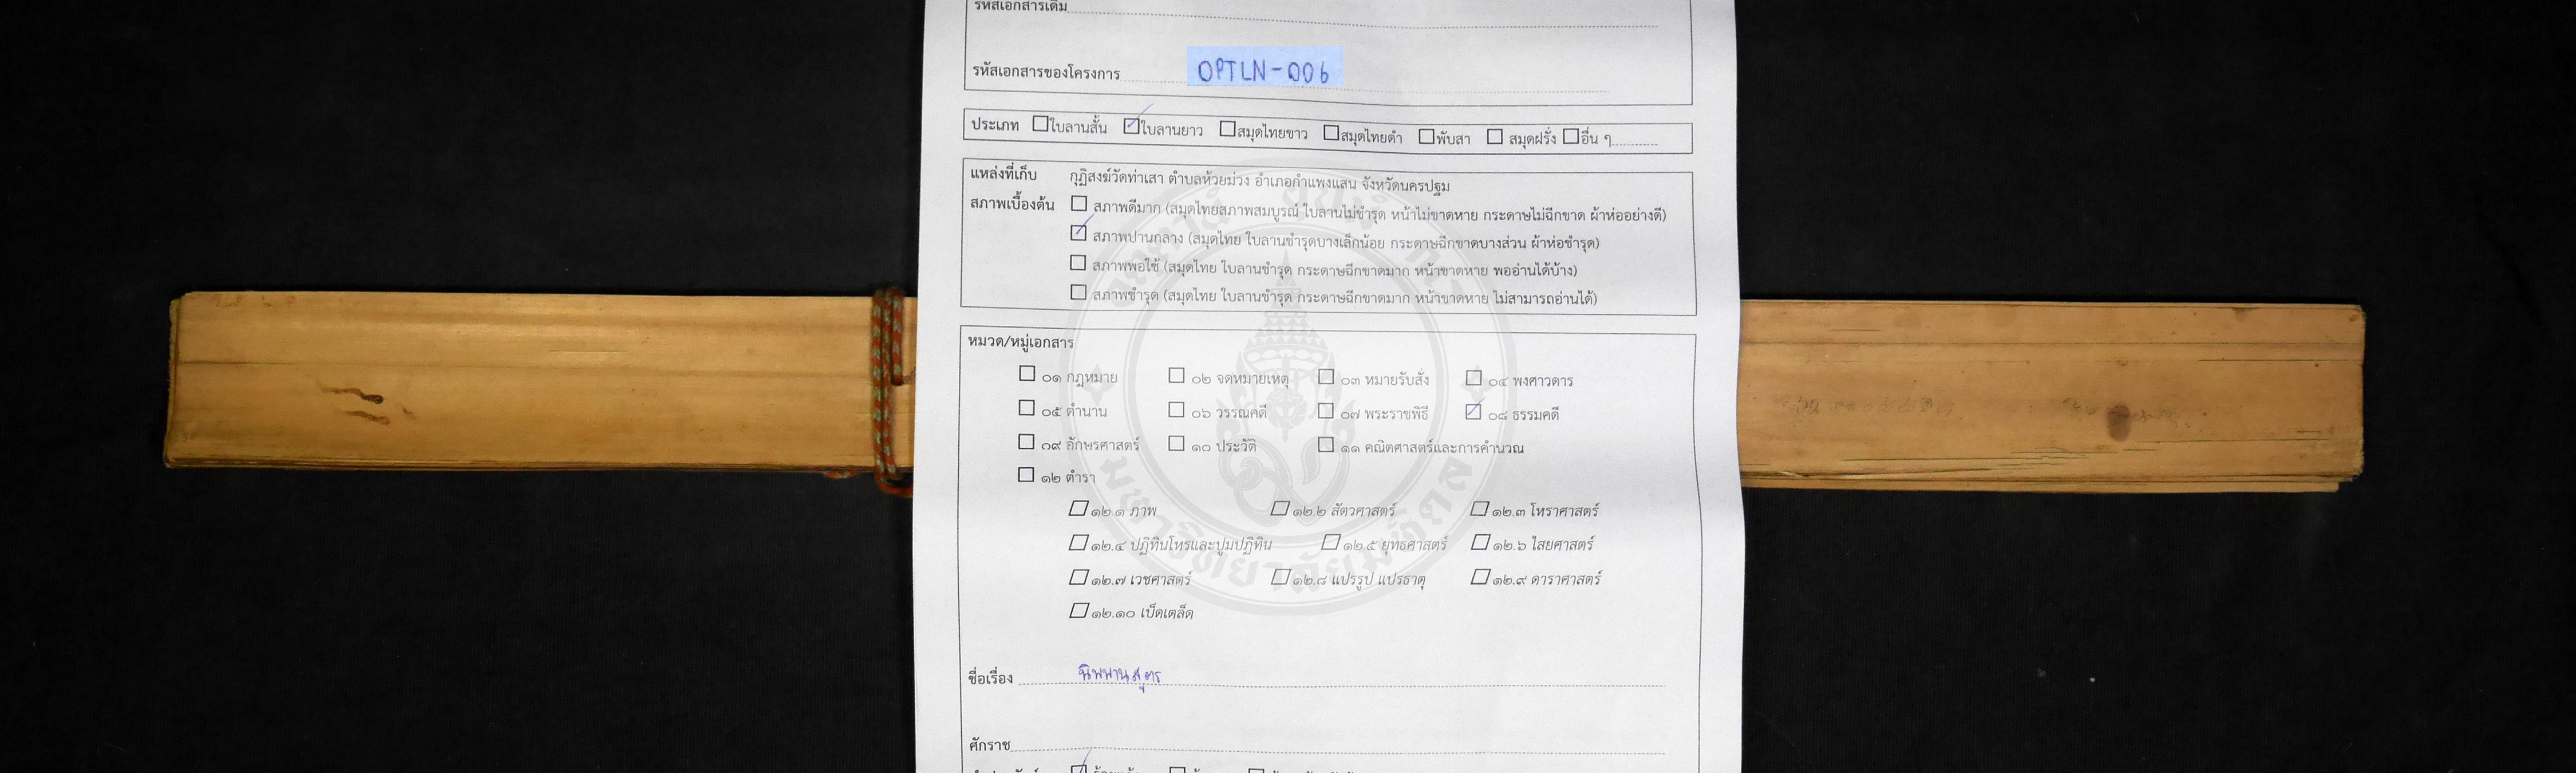 รหัสเอกสารเดิม
รหัสเอกสารของโครงการ OPTLN-006
ประเภท ใบลานสั้น ใบลานยาว สมุดไทยขาว สมุดไทยดำ พับสา สมุดฝรั่ง อื่น ๆ
แหล่งที่เก็บ กุฏิสงฆ์วัดท่าเสา ตำบลห้วยม่วง อำเภอกำแพงแสน จังหวัดนครปฐม
สภาพเบื้องต้น สภาพดีมาก (สมุดไทยสภาพสมบูรณ์ ใบลานไม่ชำรุด หน้าไม่ขาดหาย กระดาษไม่ฉีกขาด ผ้าห่ออย่างดี)
สภาพปานกลาง (สมุดไทย ใบลานชำรุดบางเล็กน้อย กระดาษฉีกขาดบางส่วน ผ้าห่อชำรุด)
สภาพพอใช้ (สมุดไทย ใบลานชำรุด กระดาษฉีกขาดมาก หน้าขาดหาย พออ่านได้บ้าง)
สภาพชำรุด (สมุดไทย ใบลานชำรุด กระดาษฉีกขาดมาก หน้าขาดหาย ไม่สามารถอ่านได้)
หมวด/หมู่เอกสาร
๐๑ กฎหมาย ๐๒ จดหมายเหตุ ๐๓ หมายรับสั่ง ๐๔ พงศาวดาร
๐๕ ตำนาน ๐๖ วรรณคดี ๐๗ พระราชพิธี ๐๘ ธรรมคดี
๐๙ อักษรศาสตร์ ๑๐ ประวัติ ๑๑ คณิตศาสตร์และการคำนวณ
๑๒ ตำรา
๑๒.๑ ภาพ ๑๒.๒ สัตวศาสตร์ ๑๒.๓ โหราศาสตร์
๑๒.๔ ปฏิทินโหรและปูมปฏิทิน ๑๒.๕ ยุทธศาสตร์ ๑๒.๖ ไสยศาสตร์
๑๒.๗ เวชศาสตร์ ๑๒.๘ แปรรูป แปรธาตุ ๑๒.๙ ดาราศาสตร์
๑๒.๑๐ เบ็ดเตล็ด
ชื่อเรื่อง นิพพานสูตร
ศักราช